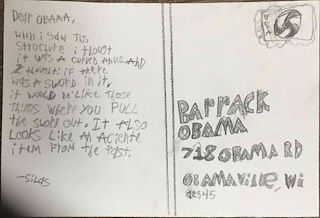 Dear OBAMA,
when i saw this
structure i thoust
it was a curved anvil. AND
I thought if there
was a sword in it,
it would be like those
things where you PULL
the sword out. It Also
Looks Like An Aciente
item from the Past.
—Silas
BARRACK
OBAMA
718 OBAMA RD
OBAMAVILLE, Wi
12345